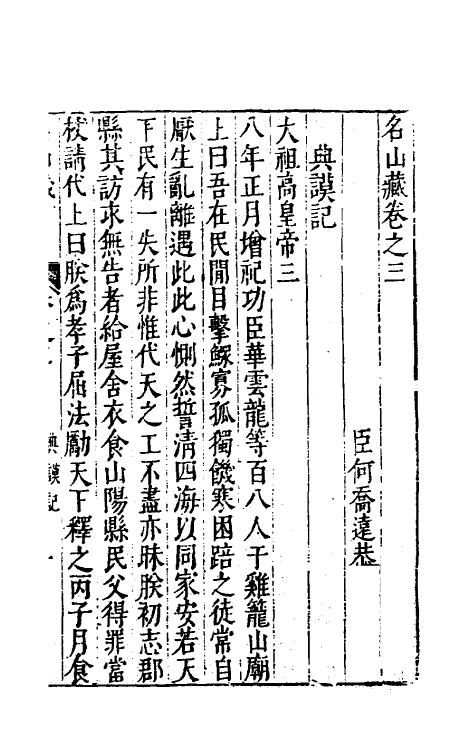 名山藏卷之三
臣何喬遠恭
典謨記
大祖高皇帝三
八年正月增祀功臣華雲龍等百八人于雞籠山廟
上曰吾在民間目擊鰥寡孤獨饑寒困踣之徒常自
厭生亂離遇此此心惻然誓清四海以同家安若天
下民有一失所非惟代天之工不盡亦昧朕初志郡
縣其訪求無告者給屋舍衣食山陽縣民父得罪當
杖請代上曰朕為孝子屈法勵天下釋之丙子月食
典謨記 一